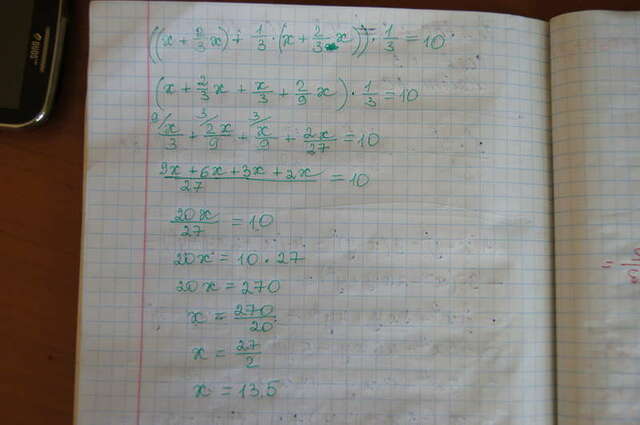 ((x + 2/3 x) + 1/3 · (x + 2/3 x)) · 1/3 = 10
(x + 2/3 x + x/3 + 2/9 x) · 1/3 = 10
9/ x/3 + 3/ 2x/9 + 3/ x/9 + 2x/27 = 10
9x + 6x + 3x + 2x / 27 = 10
20x/27 = 10
20x = 10 · 27
20x = 270
x = 270/20
x = 27/2
x = 13.5
DUOS